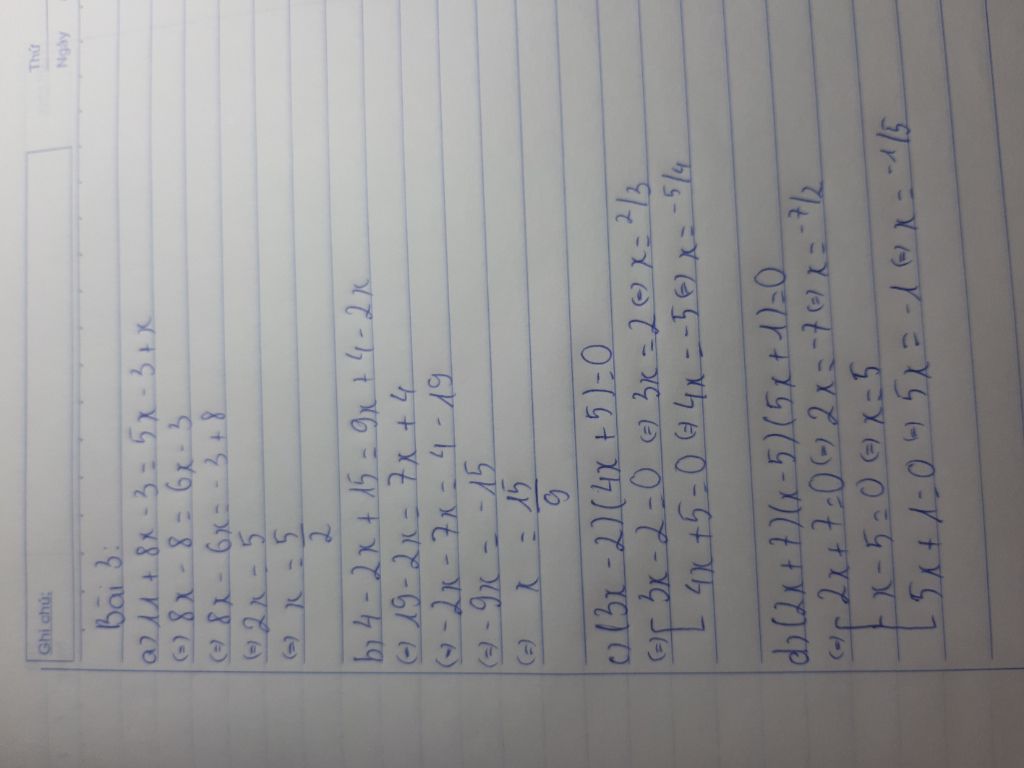 Ghi chú:
Thứ
Ngày
Bài 3:
a) 11 + 8x - 3 = 5x - 3 + x
(=) 8x - 8 = 6x - 3
(=) 8x - 6x = - 3 + 8
(=) 2x = 5
(=) x = 5/2
b) 4 - 2x + 15 = 9x + 4 - 2x
(=) 19 - 2x = 7x + 4
(=) - 2x - 7x = 4 - 19
(=) - 9x = - 15
(=) x = 15/9
c) (3x - 2)(4x + 5) = 0
(=) [ 3x - 2 = 0 (=) 3x = 2 (=) x = 2/3
[ 4x + 5 = 0 (=) 4x = -5 (=) x = -5/4
d) (2x + 7)(x - 5)(5x + 1) = 0
(=) [ 2x + 7 = 0 (=) 2x = -7 (=) x = -7/2
[ x - 5 = 0 (=) x = 5
[ 5x + 1 = 0 (=) 5x = -1 (=) x = -1/5